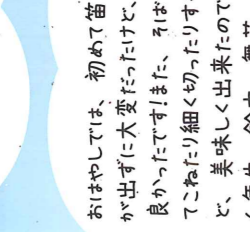 おはやしでは、初めて笛
が出ずに大変だったけど、
良かったです!また、そば
てこねたり細く切ったりす
ど、美味しく出来たので